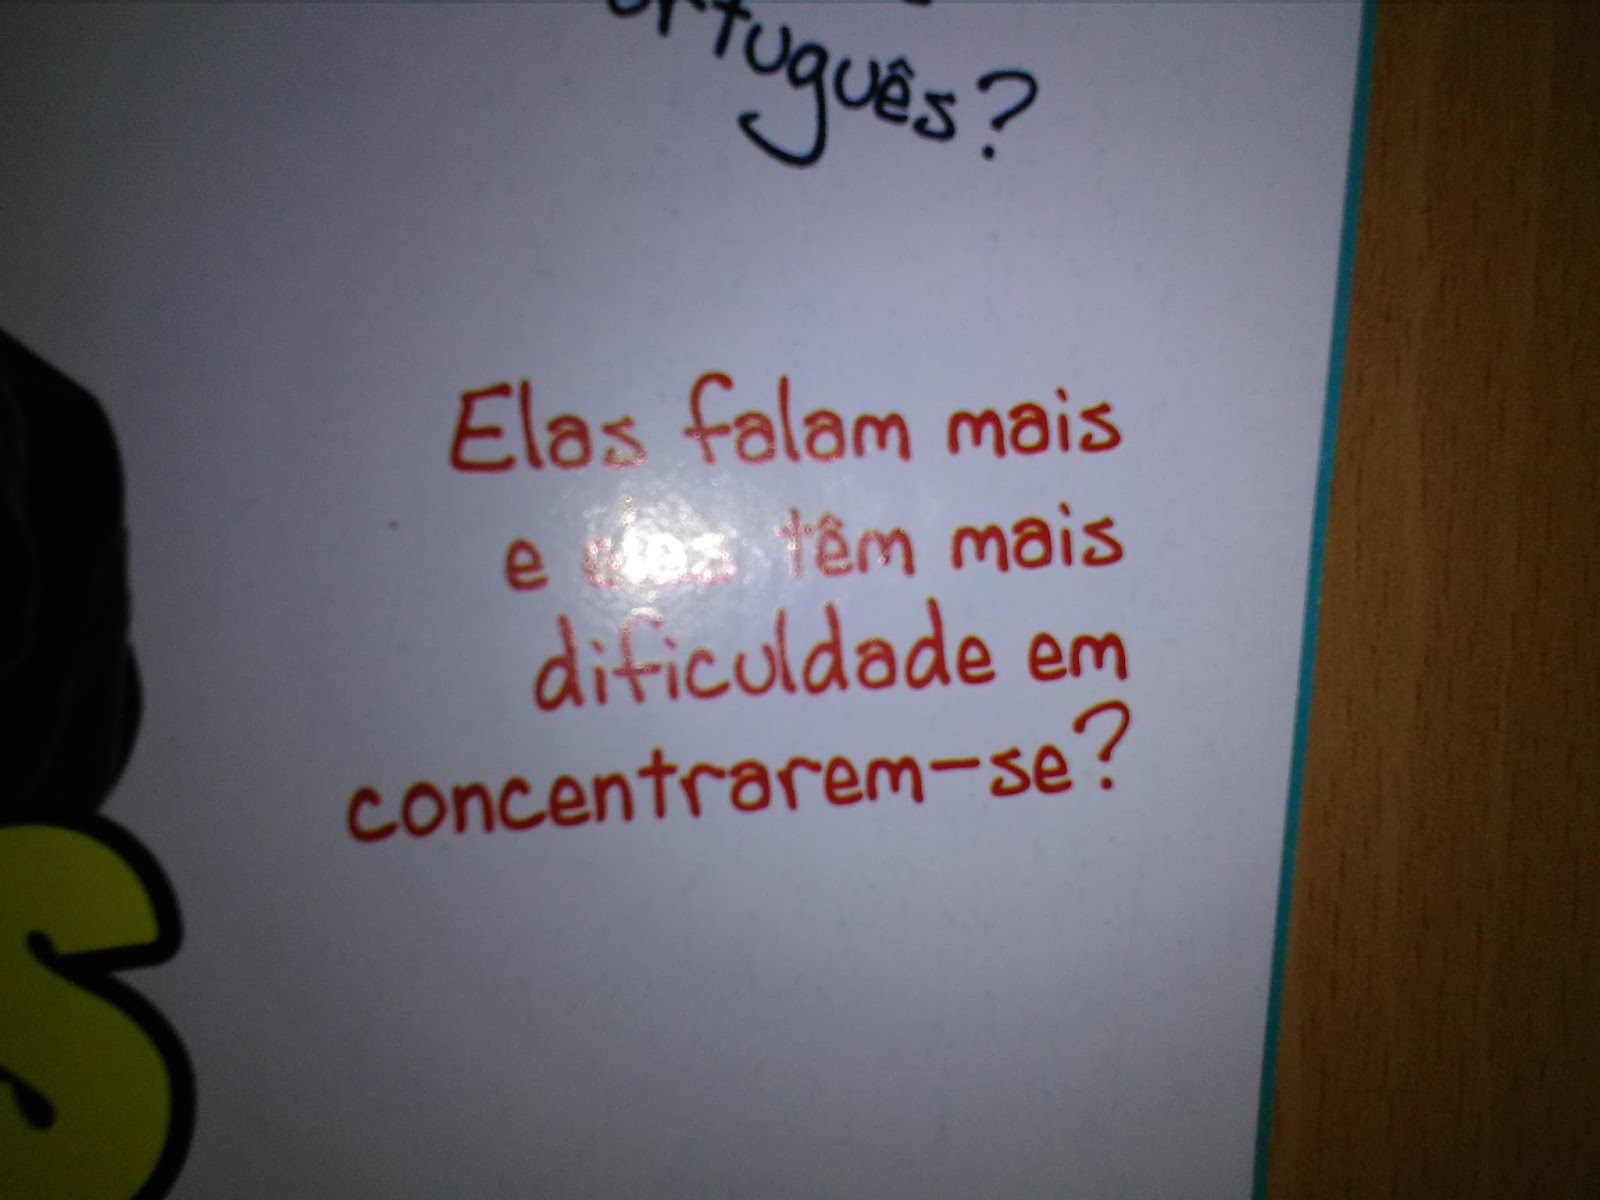 ortuguês?
Elas falam mais
e eles têm mais
dificuldade em
concentrarem-se?
S